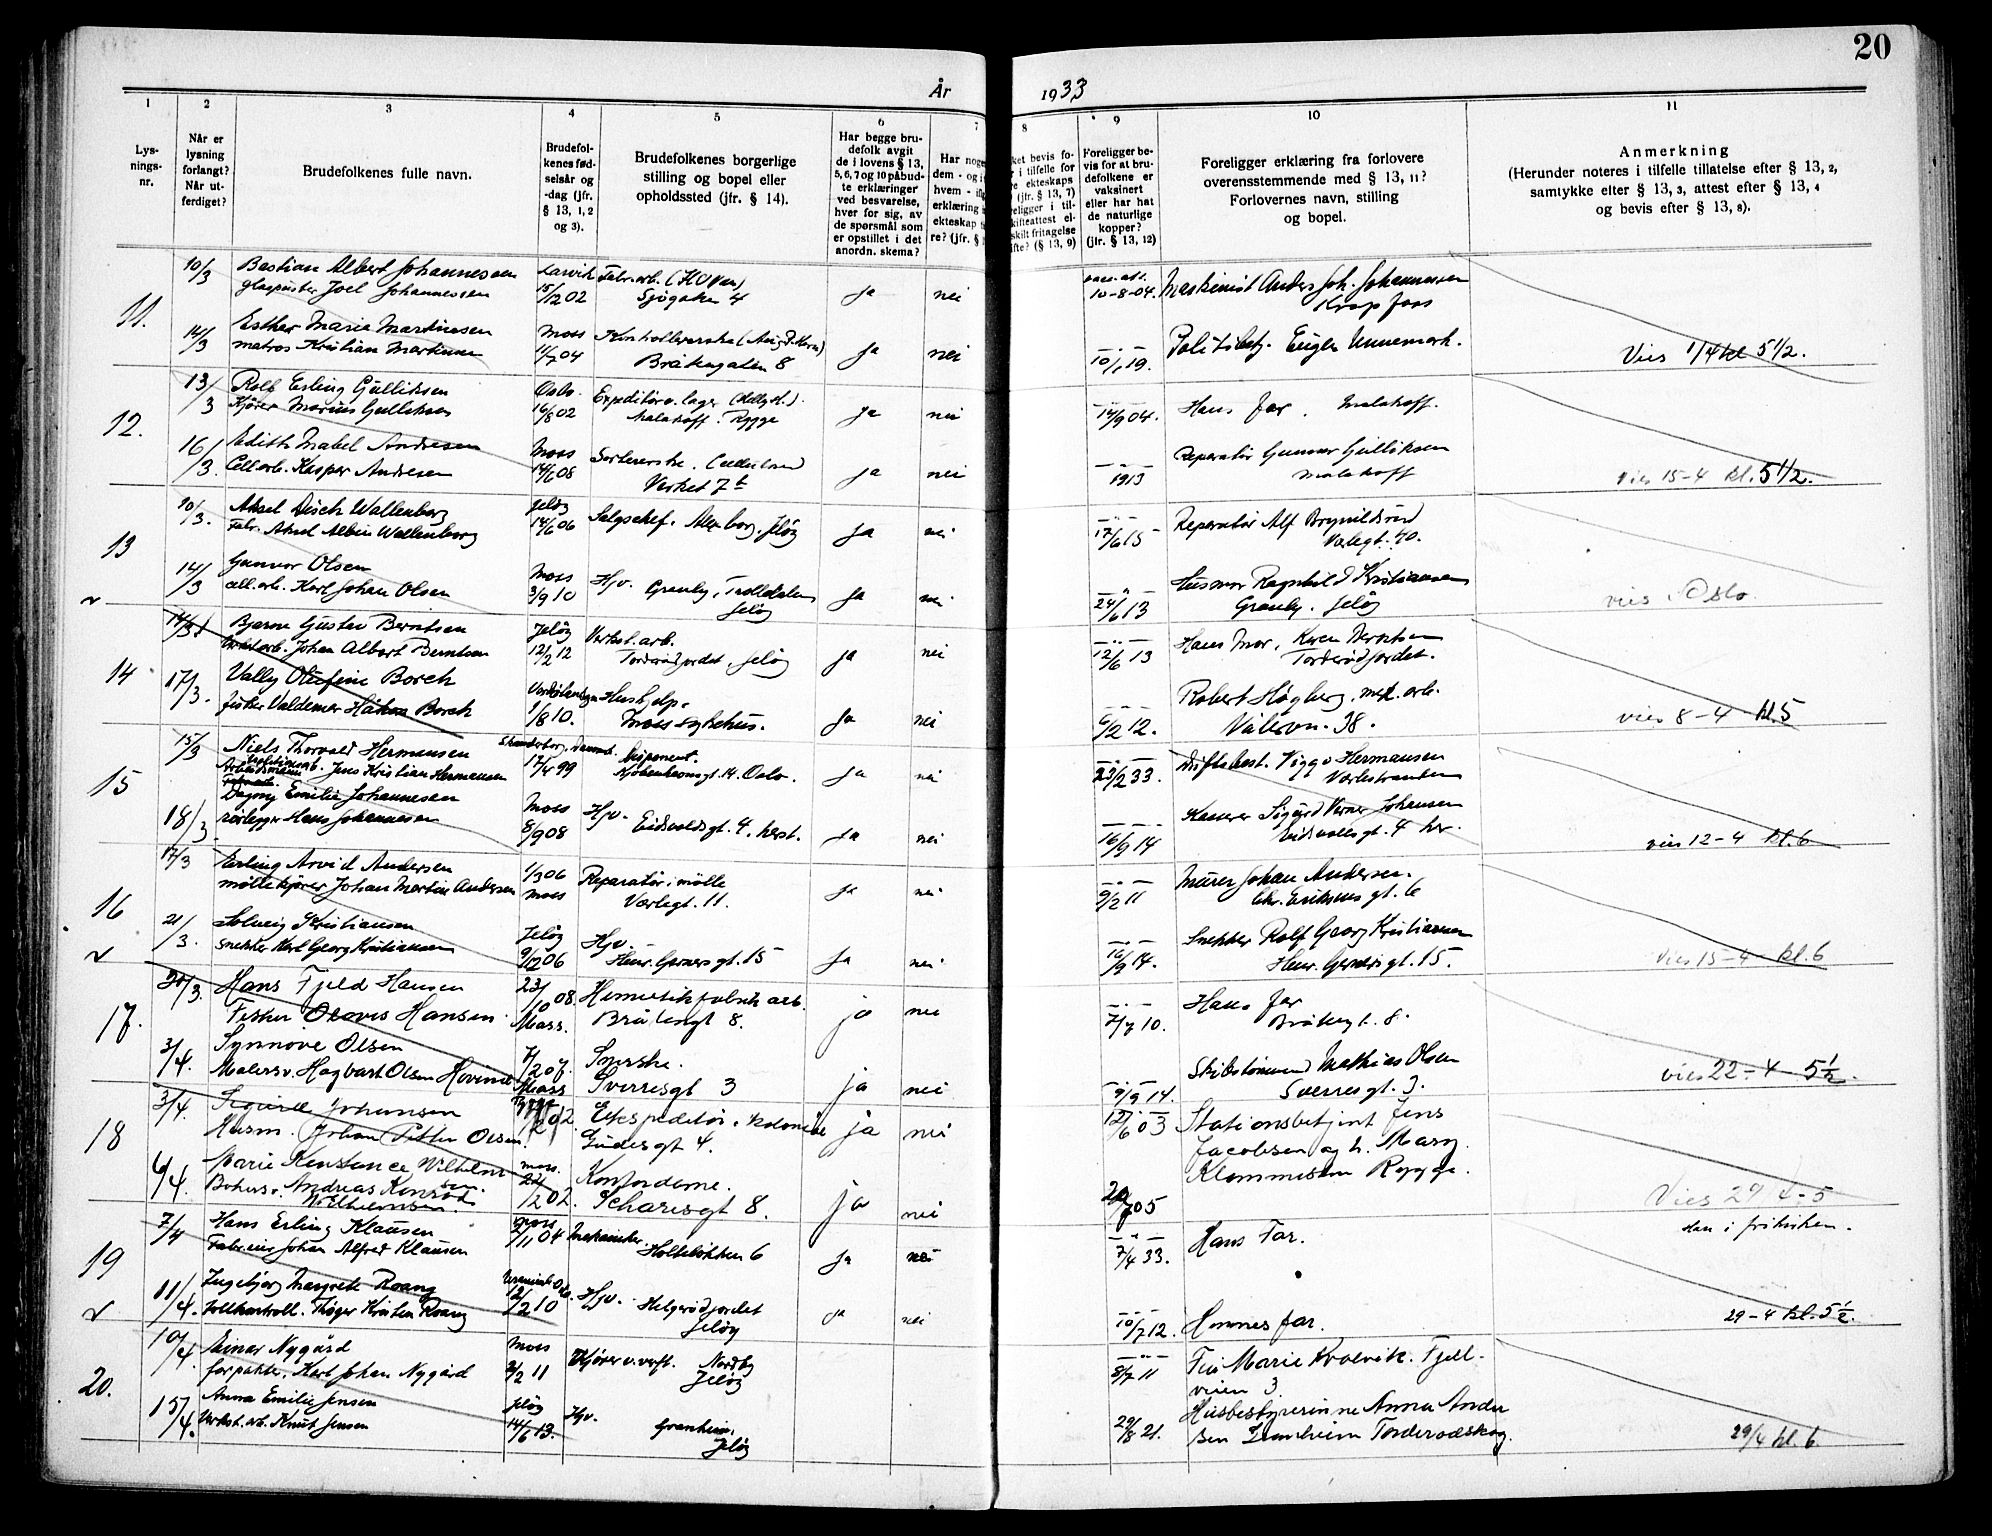 20
År 1933
1 2 3 4 5 6 7 8 9 10 11
Lys-
nings-
nr.
Når er
lysning
forlangt?
Når ut-
ferdiget?
Brudefolkenes fulle navn.
Brudefol-
kenes fød-
selsår og
-dag (jfr.
§ 13, 1, 2
og 3).
Brudefolkenes borgerlige
stilling og bopel eller
opholdssted (jfr. § 14).
Har begge bru-
defolk avgit
de i lovens § 13,
5, 6, 7 og 10 påbud-
te erklæringer
ved besvarelse,
hver for sig, av
de spørsmål som
er opstillet i det
anordn. skema?
Har nog
dem - og i
hvem - if
erklæring
ekteskap
re? (jfr. §
ket bevis fo-
r i tilfelle for
e ekteskaps
(jfr. § 13, 7)
eligger i til-
kifteattest el-
skilt fritagelse
fte? (§ 13, 9)
Foreligger be-
vis for at bru-
defolkene er
vaksinert
eller har hat
de naturlige
kopper?
(jfr. § 13, 12)
Foreligger erklæring fra forlovere
overensstemmende med § 13, 11?
Forlovernes navn, stilling
og bopel.
Anmerkning
(Herunder noteres i tilfelle tillatelse efter § 13, 2,
samtykke efter § 13, 3, attest efter § 13, 4
og bevis efter § 13, 8).
11.
10/3 Bastian Albert Johannessen Larvik Fabr.arb.
Joel Johannessen 15/12 02 Sjøgaten 4 ja nei 10-8-04. Maskinist Anders Joh. Johannessen
Krapfoss
14/3 Esther Marie Martinsen Moss
matros Kristian Martinsen 11/7 04 Bråtengaten 8 ja nei 10/1 19. Politibetj. Eugen Unnemark. Vies 1/4 kl 5 1/2.
12.
13/3 Rolf Erling Gulliksen Oslo. Expeditør v. lager
Kjører Marius Gulliksen 16/8 02 Malakoff. Rygge ja nei 14/9 04. Hans far. Malakoff.
16/3. Edith Mabel Andresen Moss Sortererske. Reparatør Gunnar Gulliksen
Cell.arb. Kasper Andresen 14/6 08 Verket 7 b ja nei 1913 Malakoff vies 15-4 kl. 5 1/2.
13
10/3. Aksel Wallenborg Jeløy
Fabr. Aksel Albin Wallenborg 14/6 06 Salgschef. Jeløy ja nei 17/6 15 Reparatør Alf Brynildsrud
Værlegt. 70.
14/3 Gunvor Olsen Moss Hjv. Granly, Trolldalen Husmor Ragnhild Kristiansen
cell.arb. Karl Johan Olsen 3/9 10 Jeløy ja nei 24/6 13 Granly. Jeløy vies i Oslo.
14
Bjarne Gustav Berntsen Jeløy Verkst.arb. Hans Mor, Karen Berntsen
Johan Albert Berntsen 12/2 12 Torderødjordet, Jeløy ja nei 12/6 13 Torderødjordet.
17/3. Vally Olufine Borch Hushjelp. Robert Høgberg, mek. arb.
fisker Valdemar Håkon Borch 1/8 10. Moss sykehus. ja nei 6/2 12. Vålervn. 38. vies 8-4 kl. 5
15
15/3 Niels Thorvald Hermansen Disponent. Driftsbest. Viggo Hermansen
Arbeidsmann Jens Kristian Hermansen 17/4 99 Københavnsgt. 14. Oslo. ja nei 23/2 33. Værlestranden
Dagny Emilie Johannesen Moss Hjv. Kasserer Sigurd Verner Johansen
18/3 rørlegger Hans Johannesen 8/9 08 Eidsvoldsgt. 4, herst. ja nei 16/9 14 Eidsvollsgt. 4 her. vies 12-4 kl. 6
16
17/3 Erling Arvid Andersen 1/3 06 Reparatør i mølle Murer Johan Andersen.
møllekjører Johan Martin Andersen Moss Værlegt. 11. ja nei 9/2 11 Chr. Eriksens gt. 6
21/3. Solveig Kristiansen Jeløy Hjv. Snekker Rolf Georg Kristiansen
snekker Karl Georg Kristiansen 9/12 06 Henr. Gerners gt. 15 ja nei 16/9 14. Henr. Gerners gt. 15. vies 15-4 kl. 6
17.
30/3. Hans Fjeld Hansen 23/10 08. Hermetikfabrik arb. Hans far
Fisker Olavus Hansen. Moss. Bråtengt 8. ja nei 7/7 10. Bråtengt. 8.
3/4. Synnøve Olsen 7/2 07. Syerske. Skibstømmerm Mathias Olsen
Malersv. Hagbart Olsen Hovind Moss Sverresgt 3 ja nei 9/9 14. Sverresgt. 3. vies 22-4 5 1/2.
18
3/4. Sigurd Johansen Rygge Ekspeditør i kolonial 12/6 03 Stationsbetjent Jens
Husm. Johan Petter Olsen. Gudesgt 4. ja nei Jacobsen og h. Mary
6/4. Marie Konstance Wilhelmsen. Moss. Kontordame. Klommesten Rygge.
Bøkers. Andreas Konrad 22/2 02. Skaresgt 8. ja nei 05 Vies 29/4-5
Wilhelmsen. den i frikirken.
19
7/4 Hans Erling Klausen Moss 7/11 04 Mekaniker.
Fabr.eier Johan Alfred Klausen Holteløkken 6 ja nei 7/4 33. Hans Far.
11/4. Ingebjørg Margrete Roang Hjv. Helgerødjordet
Tollkontroll. Thøger Kristen Roang 12/2 10 Jeløy ja nei 10/7 12. Hennes far. 29-4 kl. 5 1/2.
20.
10/4. Einar Nygård Moss Kjører v. verft. Nordby Frk Marie Kvalvik. Fjell-
forpakter, Karl Johan Nygård 2/2 11 Jeløy 8/7 11 veien 3.
15/4. Anna Emilie Jensen Jeløy Hjv. Husbestyrerinne Anna Ander
Verkst. arb. Knut Jensen 14/6 13. Granheim, Jeløy 29/8 21. sen Granheim Torderødskog. 29/4 kl. 6.